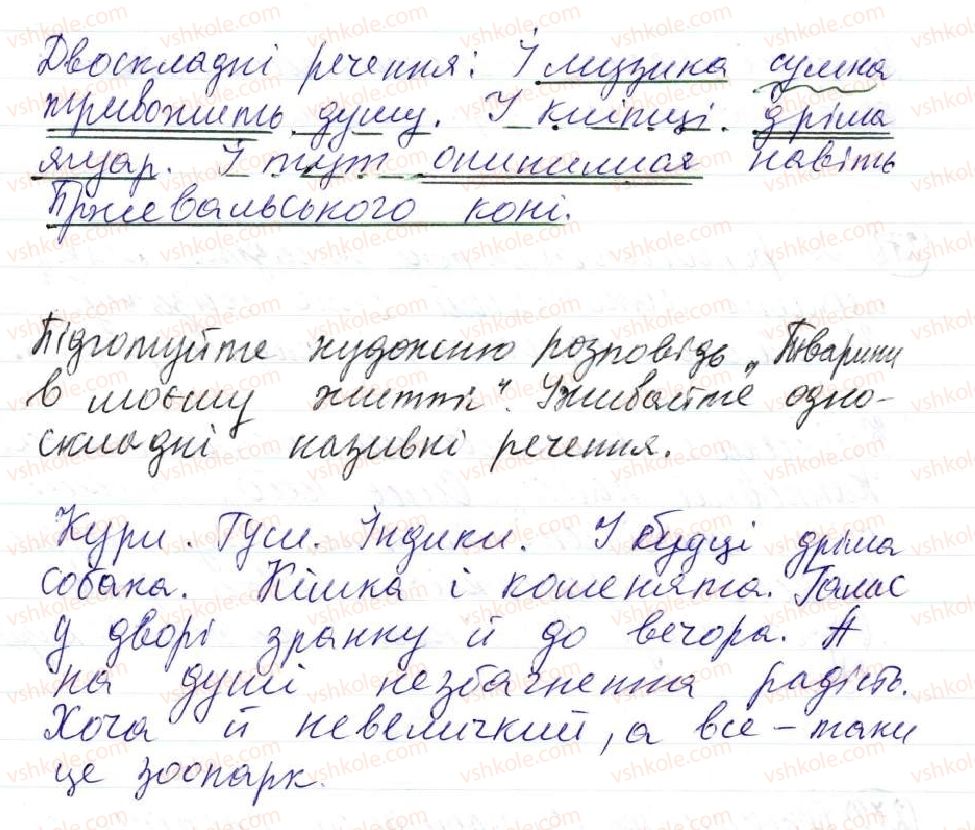 Двоскладні речення: І музика сумна
тривожить душу. У клітці дріма
ягуар. І тут опинилися навіть
Пржевальського коні.
Підготуйте художню розповідь „Тварини
в моєму житті". Уживайте одно-
складні називні речення.
Кури. Гуси. Індики. У будці дріма
собака. Кішка і кошенята. Галас
у дворі зранку й до вечора. А
на душі незбагненна радість.
Хоча й невеличкий, а все-таки
це зоопарк.